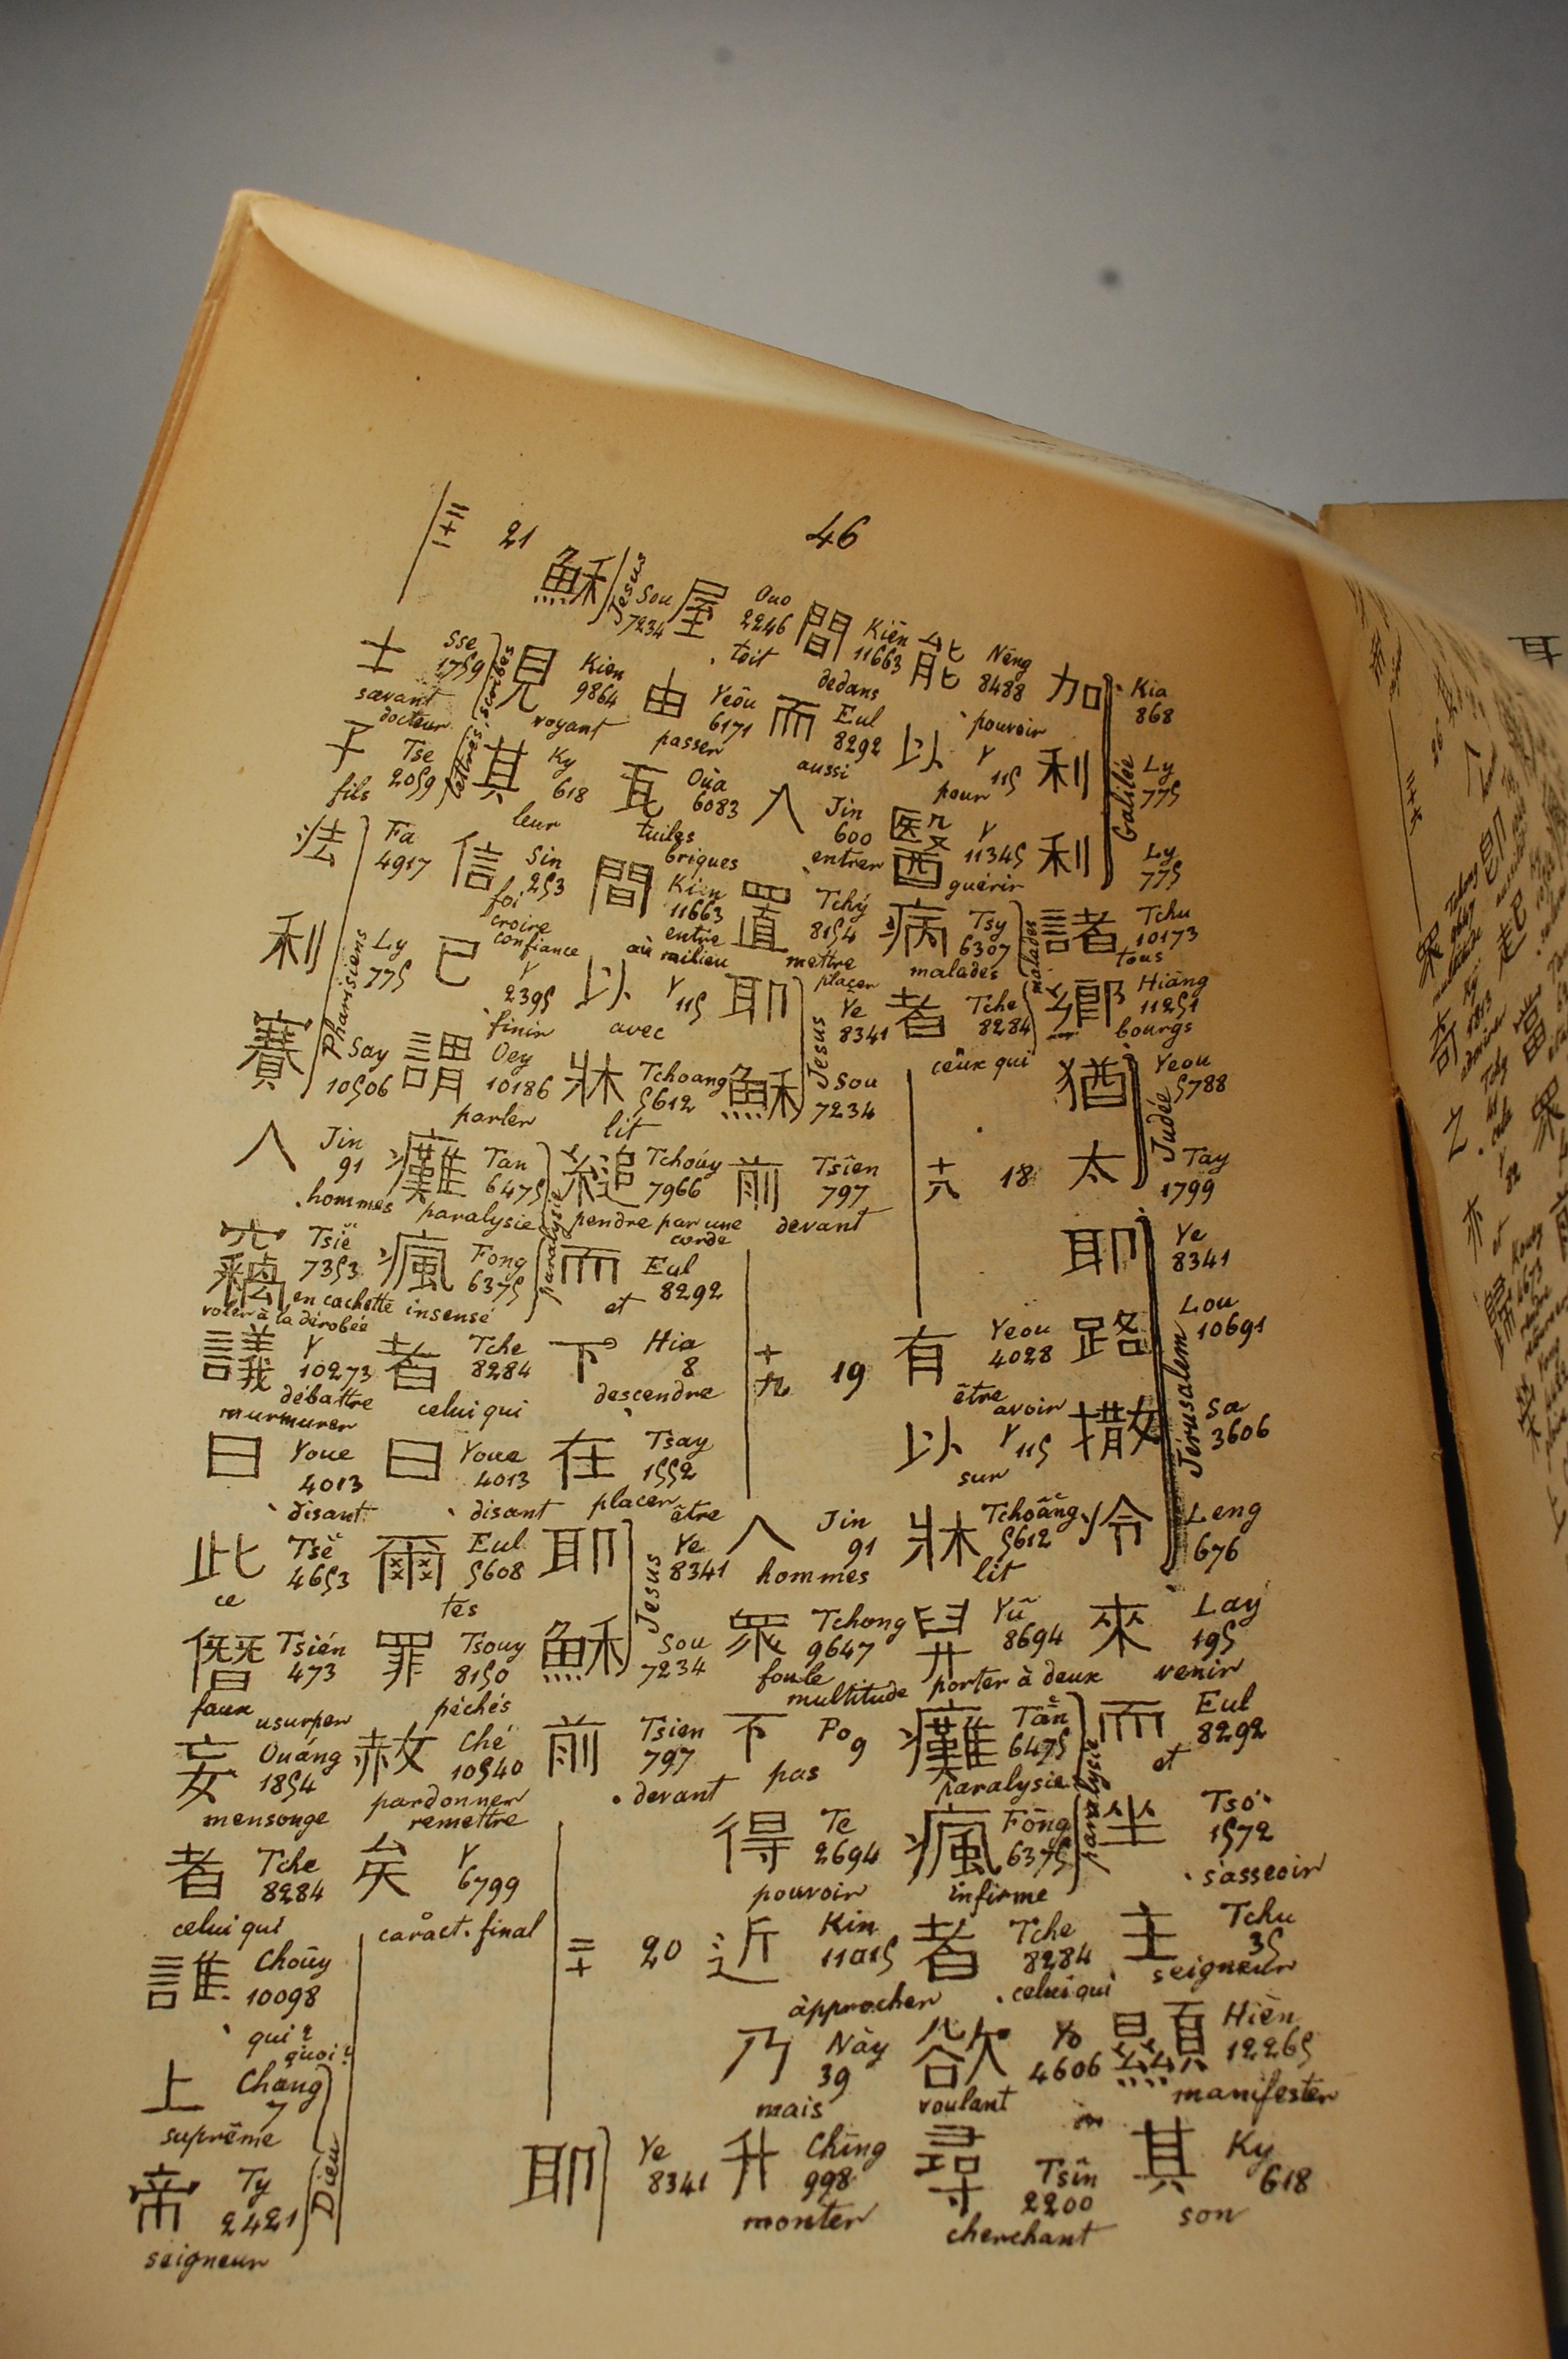 46
加 Kia 868
利 Ly 775
利 Ly 775
Galilée
諸 Tchu 10173 tous
鄉 Hiāng 11251 bourgs
猶 Yeou 5788
太 Tây 1799
Judée
耶 Ye 8341
路 Lou 10691
撒 Sa 3606
冷 Leng 676
Jérusalem
來 Lay 195 venir
而 Eul 8292 et
坐 Tsó 1572 s'asseoir
主 Tchu 35 seigneur
顯 Hièn 12265 manifester
其 Ky 618 son
能 Nêng 8488 pouvoir
以 Y 115 pour
醫 Y 11345 guérir
病 Tsy 6307 malades
者 Tche 8284 ceux qui
malades
十八 18
有 Yeou 4028 être avoir
以 Y 115 sur
牀 Tchoâng 5612 lit
舁 Yû 8694 porter à deux
癱 Tān 6475 paralysie
瘋 Fōng 6375 infirme
paralysie
者 Tche 8284 celui qui
欲 Yo 4606 voulant
尋 Tsîn 2200 cherchant
間 Kiēn 11663 dedans
而 Eul 8292 aussi
入 Jin 600 entrer
置 Tchý 8154 mettre placer
耶 Ye 8341
穌 Sou 7234
Jesus
前 Tsiên 797 devant
十九 19
人 Jin 91 hommes
眾 Tchong 9647 foule multitude
不 Po 9 pas
得 Te 2694 pouvoir
近 Kin 11015 approcher
乃 Này 39 mais
升 Ching 998 monter
屋 Ouo 2246 toit
由 Yeôu 6171 passer
瓦 Oùa 6083 tuiles briques
間 Kien 11663 entre au milieu
以 Y 115 avec
牀 Tchoang 5612 lit
縋 Tchoúy 7966 pendre par une corde
而 Eul 8292 et
下 Hia 8 descendre
在 Tsay 1552 placer être
耶 Ye 8341
穌 Sou 7234
Jesus
前 Tsien 797 devant
二十 20
耶 Ye 8341
穌 Sou 7234
Jesus
見 Kien 9864 voyant
其 Ky 618 leur
信 Sin 253 foi croire confiance
已 Y 2395 finir
謂 Oey 10186 parler
癱 Tan 6475 paralysie
瘋 Fong 6375 insensé
paralysie
者 Tche 8284 celui qui
曰 Youe 4013 disant
爾 Eul 5608 tes
罪 Tsouy 8150 péchés
赦 Ché 10540 pardonner remettre
矣 Y 6799 caract. final
二十一 21
士 Sse 1759 savant docteur
子 Tse 2059 fils
lettrés scribes
法 Fa 4917
利 Ly 775
賽 Say 10506
Pharisiens
人 Jin 91 hommes
竊 Tsiě 7353 en cachette voler à la dérobée
議 Y 10273 débattre murmurer
曰 Youe 4013 disant
此 Tsě 4653 ce
僭 Tsién 473 faux usurper
妄 Ouáng 1854 mensonge
者 Tche 8284 celui qui
誰 Choūy 10098 qui? quoi?
上 Chang 7 suprême
帝 Ty 2421 seigneur
Dieu